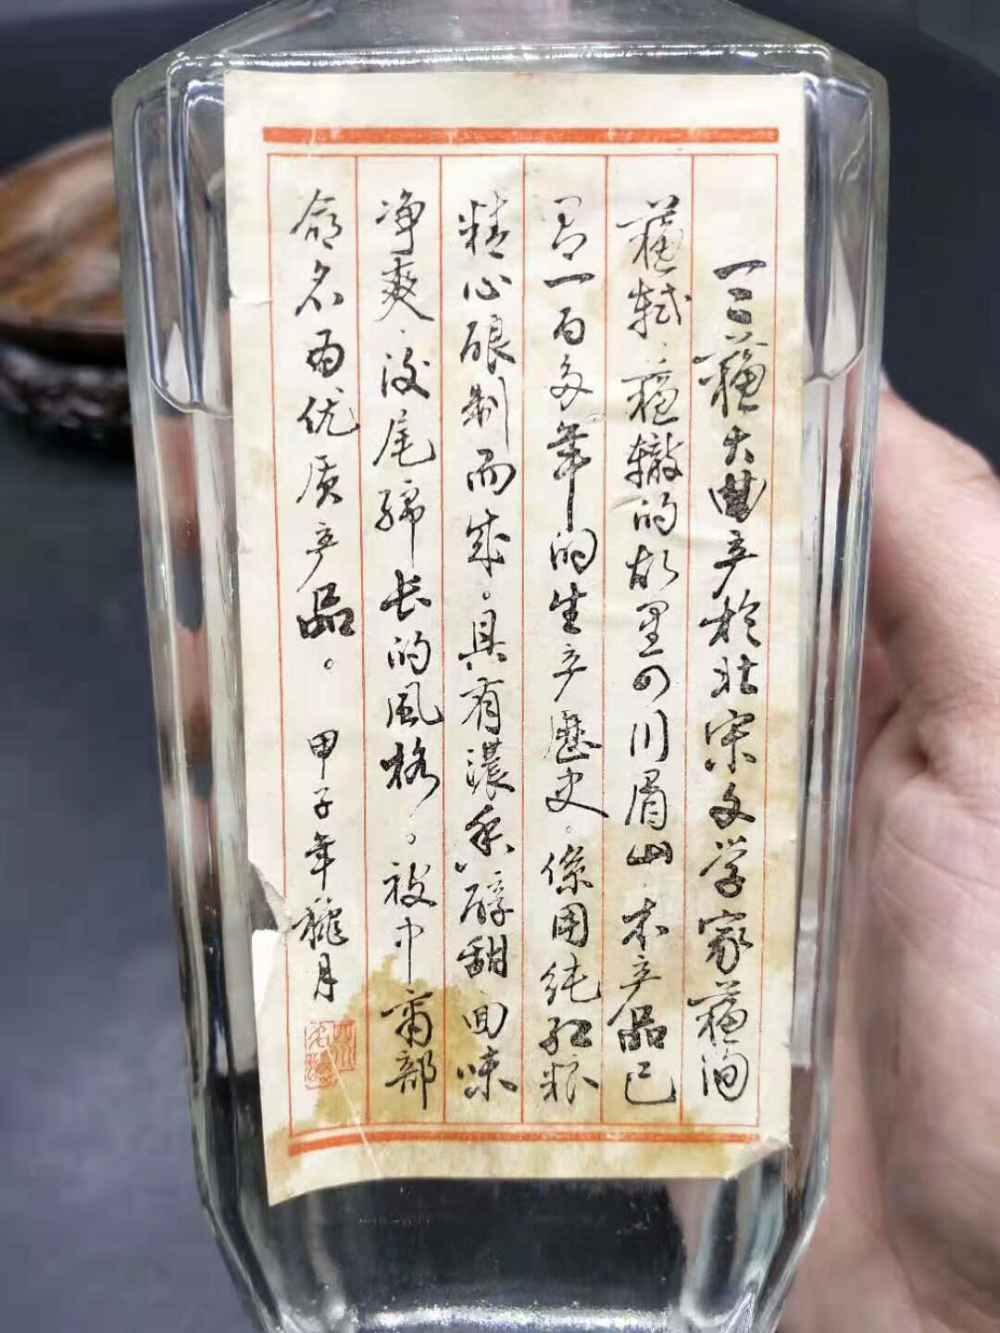 三蘇大曲产於北宋文学家蘇洵
蘇轼、蘇辙的故里四川眉山、本产品已
有一百多年的生产歷史。係用纯红粮
精心酿制而成。具有濃香醇甜回味
净爽、後尾綿长的風格。被中商部
命名为优质产品。甲子年臘月